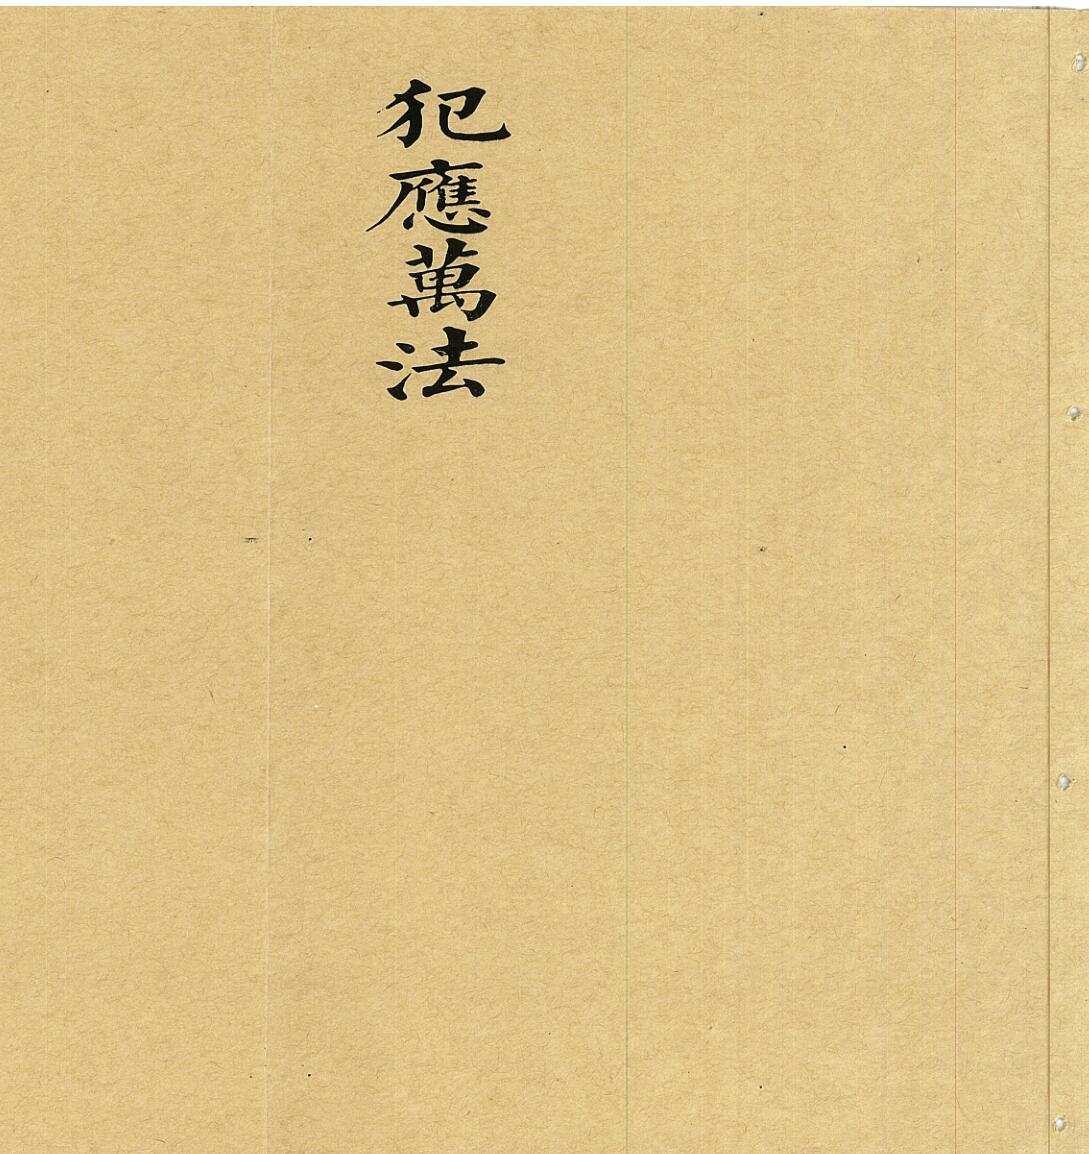 犯應萬法